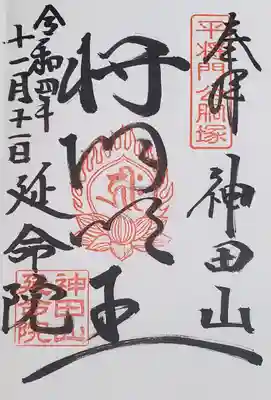 奉拝
平将門公胴塚
神田山
将門明王
令和四年
十一月十二日
延命院
神田山
延命院